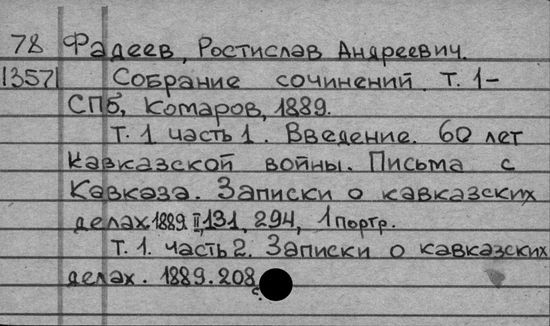 78 Фадеев, Ростислав Андреевич.
13571 Собрание сочинений. Т. 1-
СПб, Комаров, 1889.
Т. 1 часть 1. Введение. 60 лет
Кавказской войны. Письма с
Кавказа. Записки о кавказских
делах 1889 II, 131, 294, 1 портр.
Т. 1. часть 2. Записки о кавказских
делах. 1889. 208 с.